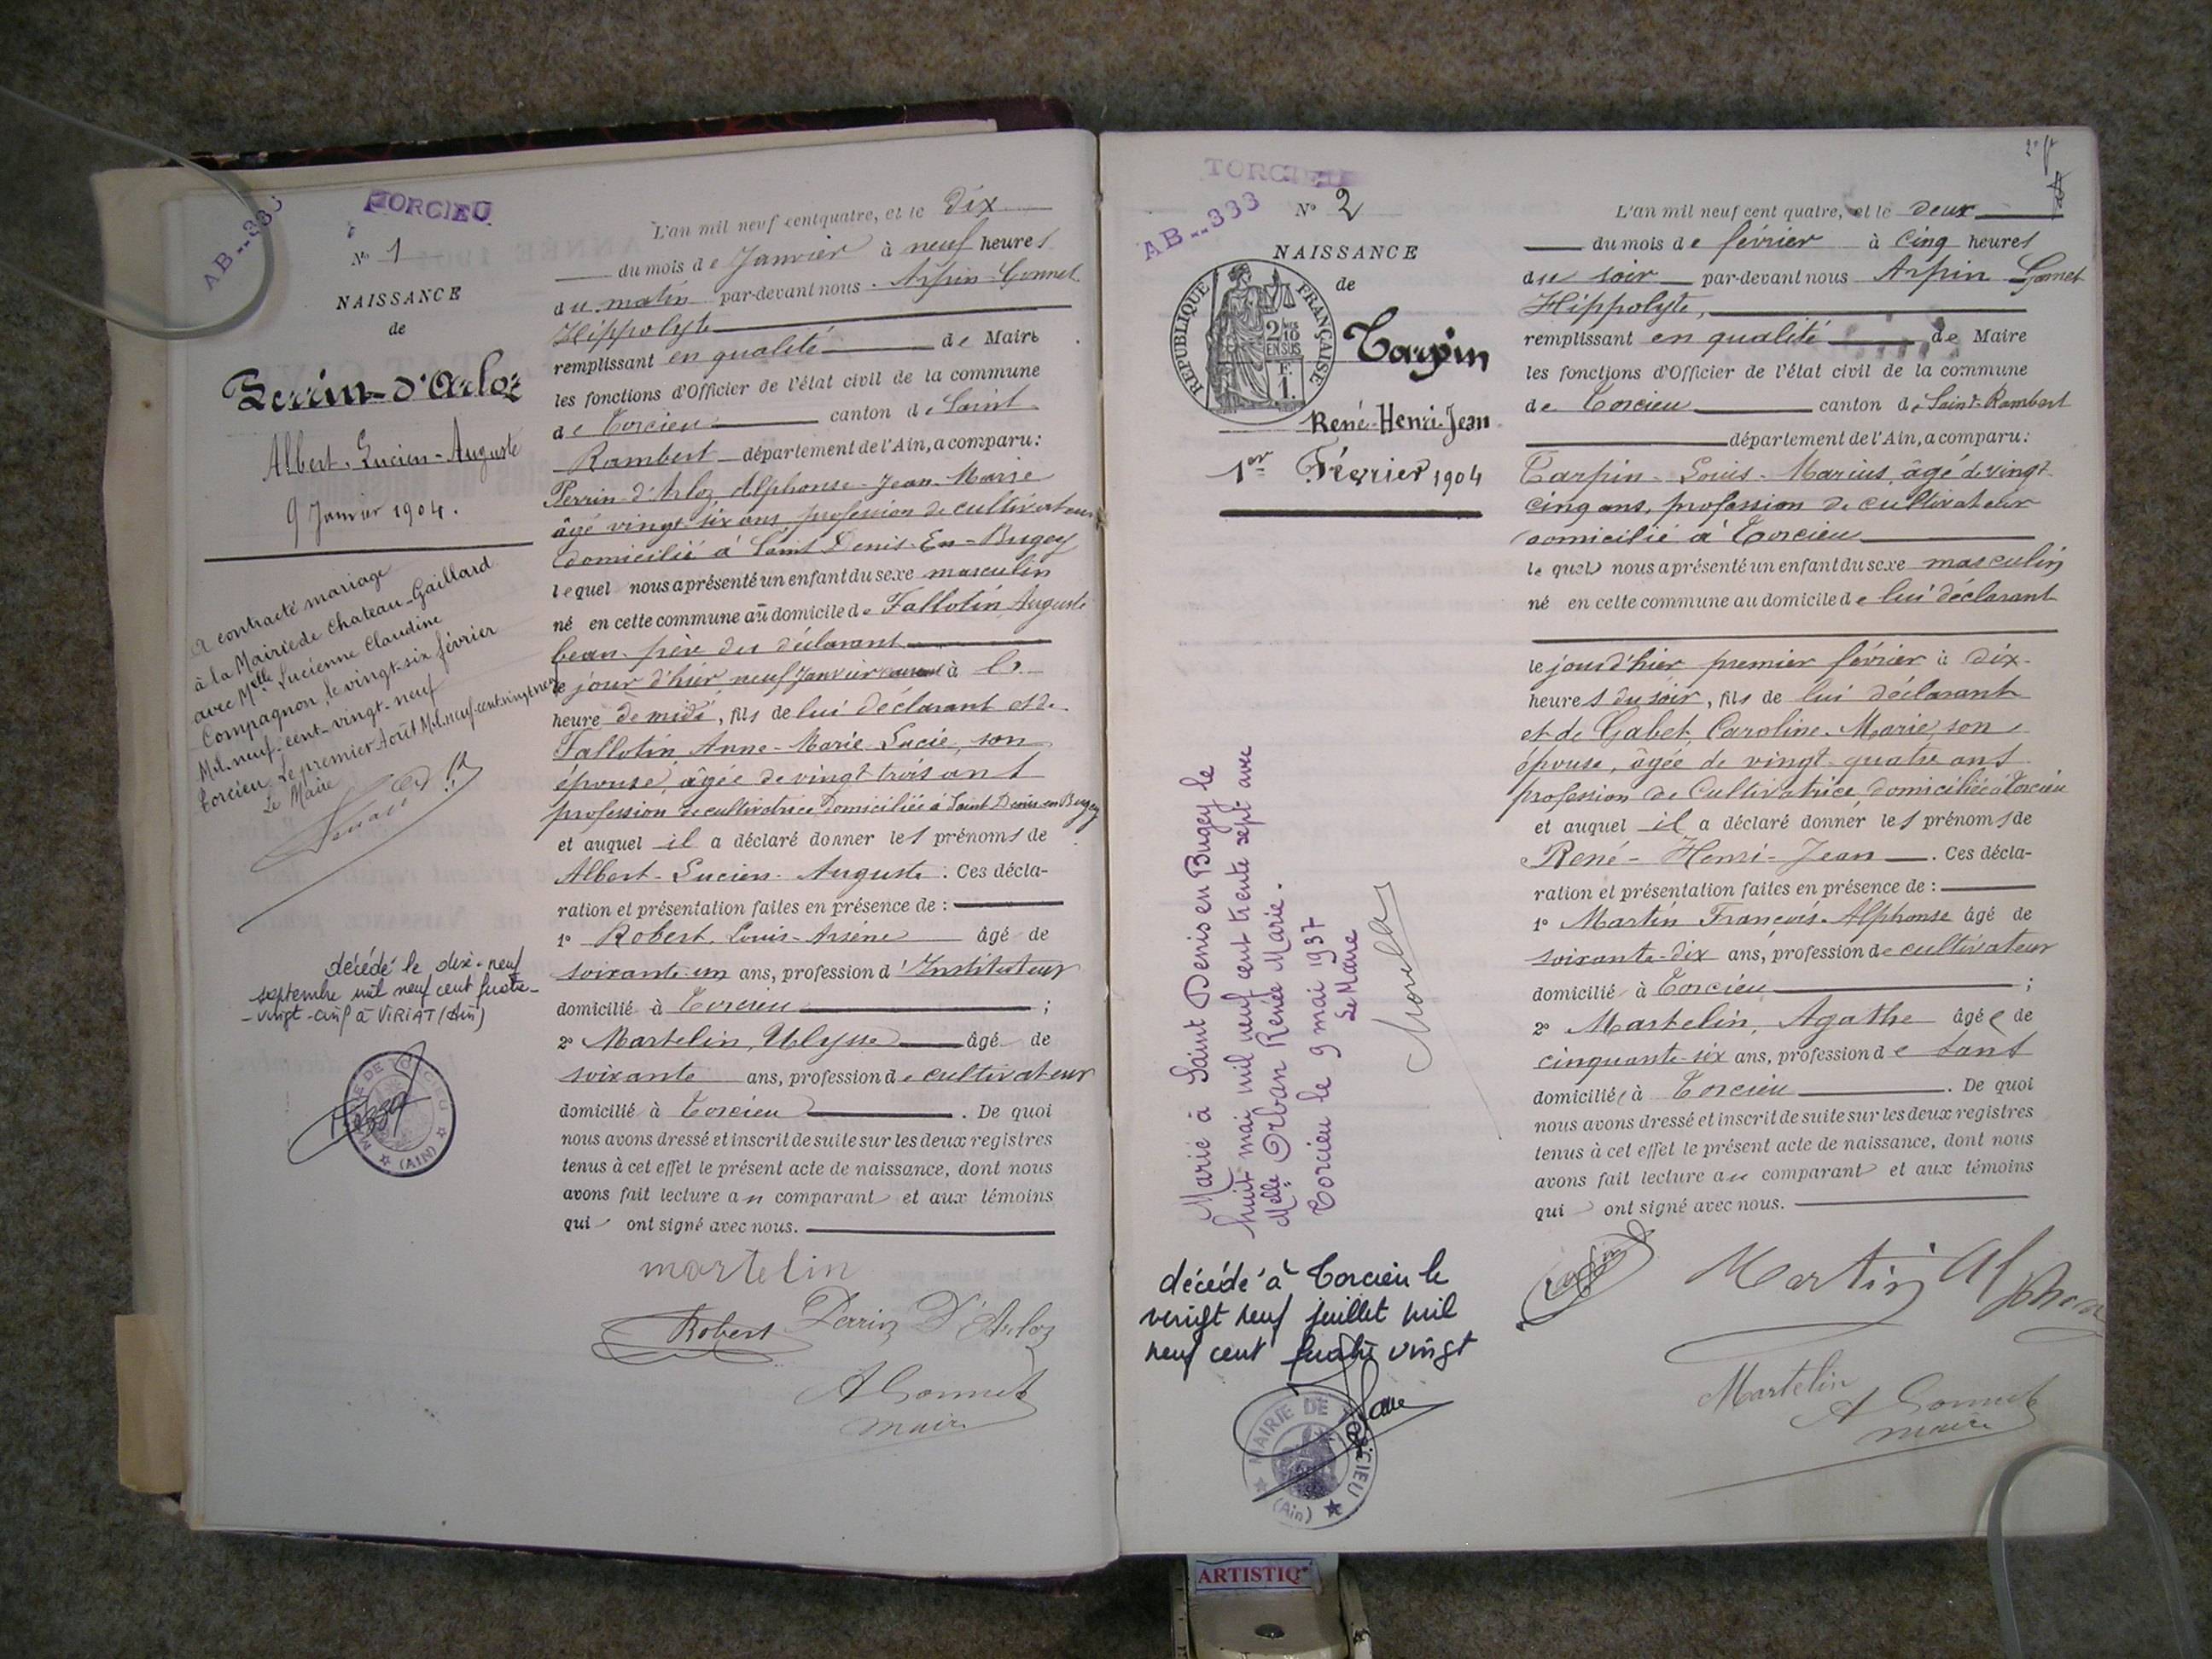 TORCIEU
AB--333
No 1
NAISSANCE
de
Perrin-d'Arloz
Albert-Lucien-Auguste
9 Janvier 1904.
A contracté mariage
à la Mairie de Chateau-Gaillard
avec Melle Lucienne Claudine
Compagnon, le vingt-six février
Mil-neuf-cent-vingt-neuf
Torcieu, Le premier Août Mil-neuf-cent-vingt neuf
Le Maire
décédé le dix-neuf
septembre mil neuf cent quatre-
-vingt-cinq à VIRIAT (Ain)
MAIRIE DE TORCIEU
(AIN)
L'an mil neuf cent quatre, et le dix
du mois de Janvier à neuf heures
du matin par-devant nous Arpin-Gonnet
Hippolyte
remplissant en qualité de Maire
les fonctions d'Officier de l'état civil de la commune
de Torcieu canton de Saint
Rambert département de l'Ain, a comparu:
Perrin-d'Arloz, Alphonse-Jean-Marie
âgé vingt-six ans, profession de cultivateur
domicilié à Saint Denis-En-Bugey
lequel nous a présenté un enfant du sexe masculin
né en cette commune au domicile de Fallotin Auguste
beau-père du déclarant
le jour d'hier neuf Janvier courant à
heure de midi, fils de lui déclarant et de
Fallotin Anne-Marie-Lucie, son
épouse, âgée de vingt trois ans
profession de cultivatrice domiciliée à Saint Denis en Bugey
et auquel il a déclaré donner les prénoms de
Albert-Lucien-Auguste. Ces décla-
ration et présentation faites en présence de :
1° Robert, Louis-Arsène âgé de
soixante-un ans, profession d'Instituteur
domicilié à Torcieu ;
2° Martelin, Ulysse âgé de
soixante ans, profession de cultivateur
domicilié à Torcieu . De quoi
nous avons dressé et inscrit de suite sur les deux registres
tenus à cet effet le présent acte de naissance, dont nous
avons fait lecture au comparant et aux témoins
qui ont signé avec nous.
martelin
Robert Perrin D'Arloz
A Gonnet
maire
TORCIEU
AB--333
No 2
NAISSANCE
de
REPUBLIQUE FRANÇAISE
2/10
EN SUS
F.
1.
Tarpin
René-Henri-Jean
1er Février 1904
Marié à Saint Denis en Bugey le
huit mai mil neuf cent trente sept avec
Melle Orban Renée Marie.
Torcieu le 9 mai 1937
Le Maire
décédé à Torcieu le
vingt neuf juillet mil
neuf cent quatre vingt
MAIRIE DE TORCIEU
(Ain)
L'an mil neuf cent quatre, et le deux
du mois de février à cinq heures
du soir par-devant nous Arpin Gonnet
Hippolyte,
remplissant en qualité de Maire
les fonctions d'Officier de l'état civil de la commune
de Torcieu canton de Saint-Rambert
département de l'Ain, a comparu:
Tarpin-Louis-Marius, âgé de vingt
cinq ans, profession de cultivateur
domicilié à Torcieu
lequel nous a présenté un enfant du sexe masculin
né en cette commune au domicile de lui déclarant
le jour d'hier premier février à dix
heures du soir, fils de lui déclarant
et de Gabet, Caroline-Marie, son
épouse, âgée de vingt-quatre ans
profession de Cultivatrice domiciliée à Torcieu
et auquel il a déclaré donner les prénoms de
René-Henri-Jean. Ces décla-
ration et présentation faites en présence de :
1° Martin François-Alphonse âgé de
soixante-dix ans, profession de cultivateur
domicilié à Torcieu ;
2° Martelin, Agathe âgée de
cinquante-six ans, profession de sans
domiciliée à Torcieu . De quoi
nous avons dressé et inscrit de suite sur les deux registres
tenus à cet effet le présent acte de naissance, dont nous
avons fait lecture au comparant et aux témoins
qui ont signé avec nous.
Tarpin Martin Alphonse
Martelin
A Gonnet
maire
ARTISTIQ